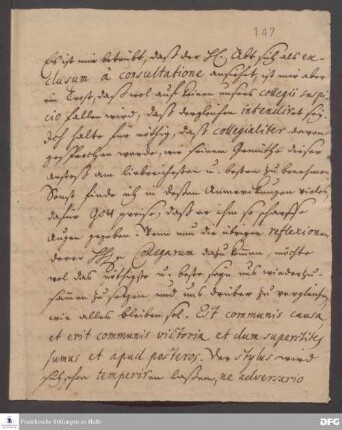 147
Es ist mir betrübt, daß der H. Abt sich als ex-
clusum à consultatione ansiehet, ist mir aber
ein Trost, daß wol auf keinen unsers collegii suspi
cio fallen wird, daß dergleichen intendiret sey.
Doch halte für nöthig, daß collegialiter davon
gesprochen werde, wie seinem Gemüthe dieser
anstoß am liebreichesten u. besten zu benehmen.
Sonst finde ich in deßen Anmerckungen vieles,
dafür Gott preise, daß er ihm so scharffe
Augen gegeben. Wenn nun die übrigen reflexiones
derer HH. Collegarum dazu kämen, möchte
wol das nöthigste u. beste seyn uns wieder zu-
samen zu setzen und uns drüber zu vergleichen,
wie alles bleiben sol. Est communis causa
et erit communis victoria et dum superstites
sumus et apud posteros. Der stylus wird
sich schon temperiren laßen, ne adversario
Franckesche Stiftungen zu Halle
DFG